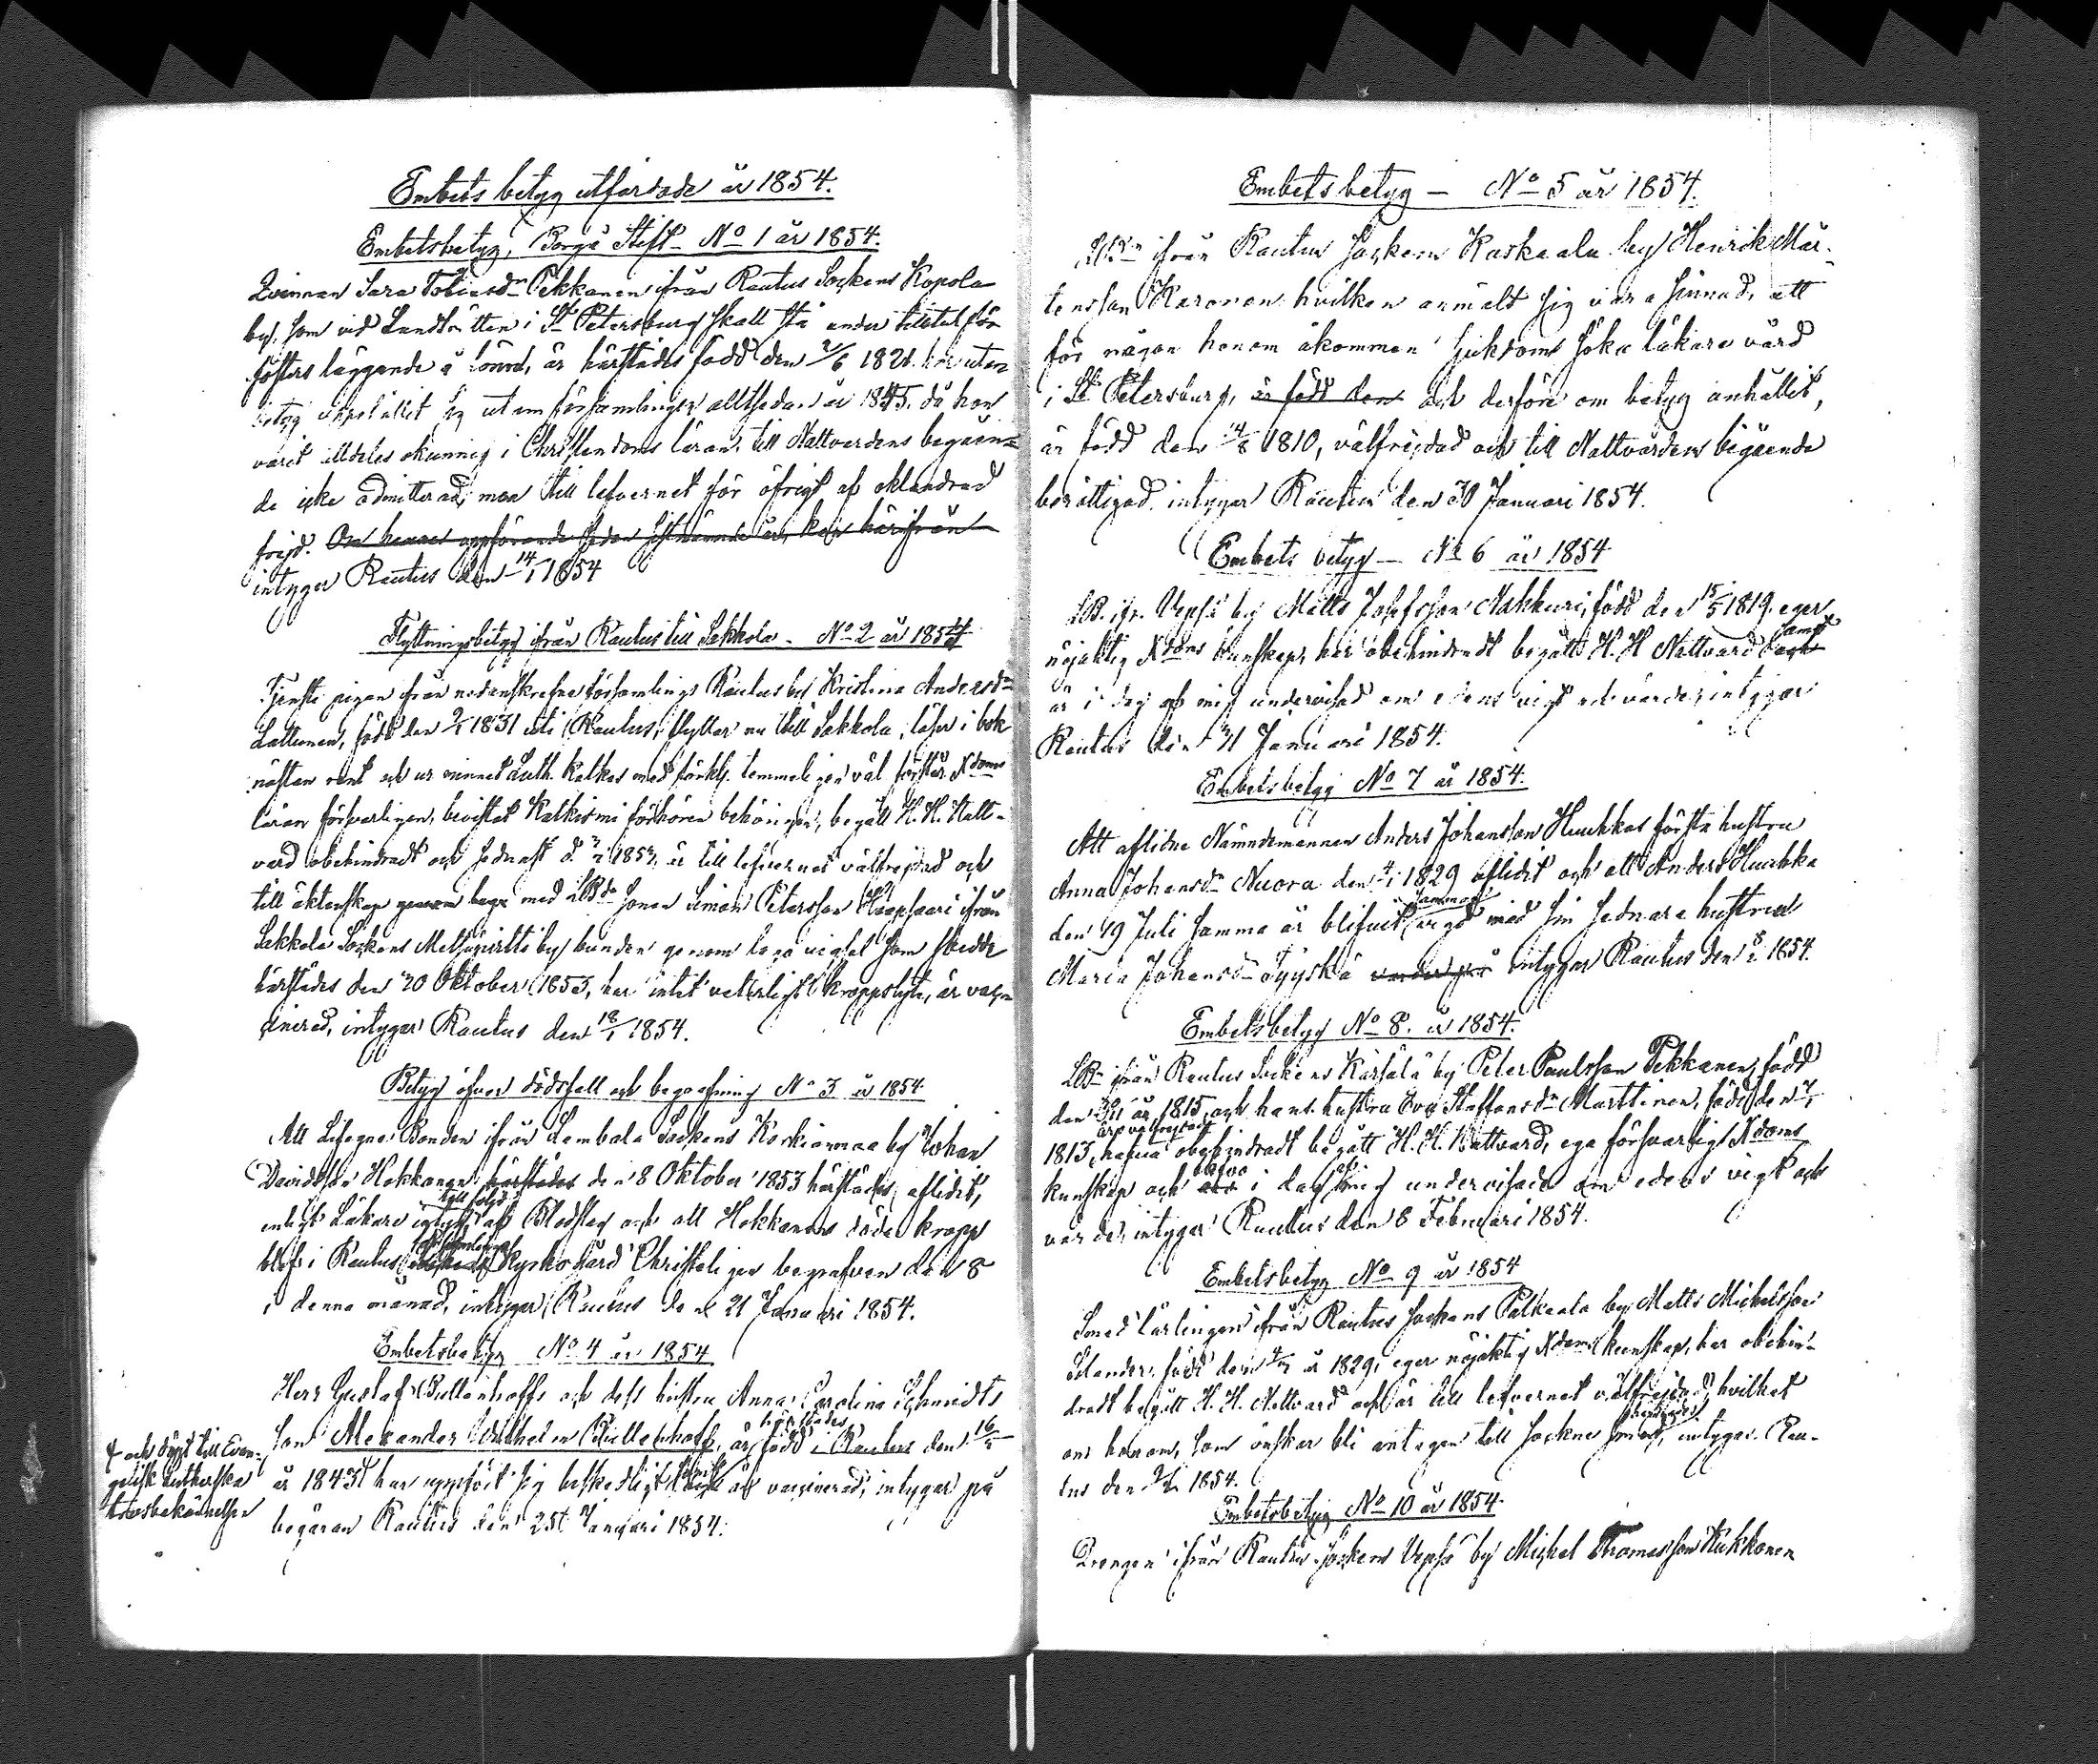 Embets betyg utfärdade år 1854.
Embetsbetyg, Borgå Stift No 1 år 1854.
Qvinnan Sara Tobiasdr Pekkanen ifrån Rautus Sockens Kopola
by, som vid Landträtten i St Petersburg skall stå under tilltal för
fosters läggande å lönn, är härstädes född den 2/6 1821. har utan
betyg uppehållit sig utom församlingen alltsedan år 1845. då hon
varit alldeles okunnig i Christendoms läran, till Nattvardens begåen-
de icke admitterad, men till lefvernet för öfrigt af oklandrad
frejd. Om hennes uppförande sedan sistnämnde år, kan härifrån
intygar Rautus den 14/1 1854
Flyttningsbetyg ifrån Rautus till Sakkola - No 2 år 1854
Tjenste pigan ifrån nedanskrefne församlings Rautus by Kristina Andersdr
Lattunen, född den 2/1 1831 uti Rautus, flyttar nu till Sakkola, läser i bok
nästan rent och ur minnet Luth. Katkes med förkl. temmeligen väl förstår Xdoms
läran försvarligen, bevistat Katkismi förhören behörigen, begått H. H. Natt-
vard obehindradt och sednast d. 1853, är till lefvernet välfrejdad och
till äktenskap genom laga med LBde Sonen Simon Petersson Haapsaari ifrån
Sakkola Sockens Metsäpirtti by bunden genom laga vigsel som skedde
härstädes den 20 Oktober 1853, har intet veterligt kroppslyte, är vacci-
nerad, intygar Rautus den 18/1 1854.
Betyg öfver dödsfall och begrafning No 3 år 1854
Att Lifegne Bonden ifrån Lembala Sockens Korkiamaa by Johan
Davidsson Hokkanen härstädes den 8 Oktober 1853 härstädes aflidit,
till följd
enligt Läkare intyg af Blodslag och att Hokkanens döda kropp
församlings
blef i Rautus Kyrkogård Christeligen begrafven den 8
i denna månad, intygar Rautus den 21 Januari 1854.
Embetsbetyg No 4 år 1854
Herr Gustaf Bullenhoffs och dess hustru Anna Carolina Schmidts
härstädes
son Alexander Wilhelm Bullenhoff, är född i Rautus den 16/5
+ och döpt till Evan-
gelisk Lutherska
trosbekännelsen
år 1843+ har uppfört sig beskedligt samt är vaccinerad, intygar på
begäran Rautus den 25 Januari 1854.
Embetsbetyg — No 5 år 1854.
LBn ifrån Rautus Sockens Kaskaala by Henrik Mår-
tensson Karonen hvilken anmält sig vara sinnad, att
för någon honom åkommen sjukdom söka läkare vård
i St Petersburg, är född den och derföre om betyg anhållit,
är född den 14/8 1810, välfrejdad och till Nattvardens begående
berättigad. intygar Rautus den 30 Januari 1854.
Embets betyg — No 6 år 1854
LB. ifr. Vepsä by Matts Josefsson Nakkuri, född den 15/5 1819. eger
nöjaktig Xdoms kunskap, har obehindradt begått H. H Nattvard samt
är i dag af mig undervisad om edens vigt och värde, intygar
Rautus den 31 Januari 1854.
Embetsbetyg No 7 år 1854.
Att aflidne Nämndemannen Anders Johansson Huuhkas första hustru
Anna Johansdr Nuora den 4/1 1829 aflidit och att Anders Huuhka
den 19 Juli samma år blifvit vigd med sin sednare hustru
Maria Johansdr Äyyskä intygar Rautus den 8/2 1854.
Embetsbetyg No 8. år 1854.
LBn ifrån Rautus Sockens Kärsälä by Peter Paulsson Pekkanen, född
den år 1815, och hans hustru Eva Staffansdr Marttinen, född den
äro välfrejdade
1813, hafva obehindradt begått H. H. Nattvard, ega försvarligt Xdoms
blifvit af
kunskap och äro i dag mig undervisade om edens vigt och
värde, intygar Rautus den 8 Februari 1854.
Embetsbetyg No 9 år 1854
Smed lärlingen ifrån Rautus Sockens Palkeala by Matts Michelsson
Elander, född den år 1829, eger nöjaktig Xdoms kunskap, har obehin-
dradt begått H. H. Nattvard och är till lefvernet välfrejdad, hvilket
om honom, som önskar bli antagen till Sockne smed, intygar. Rau-
tus den 1854.
Embetsbetyg No 10 år 1854
Drengen ifrån Rautus Sockens Vepsä by Michel Thomasson Kukkonen